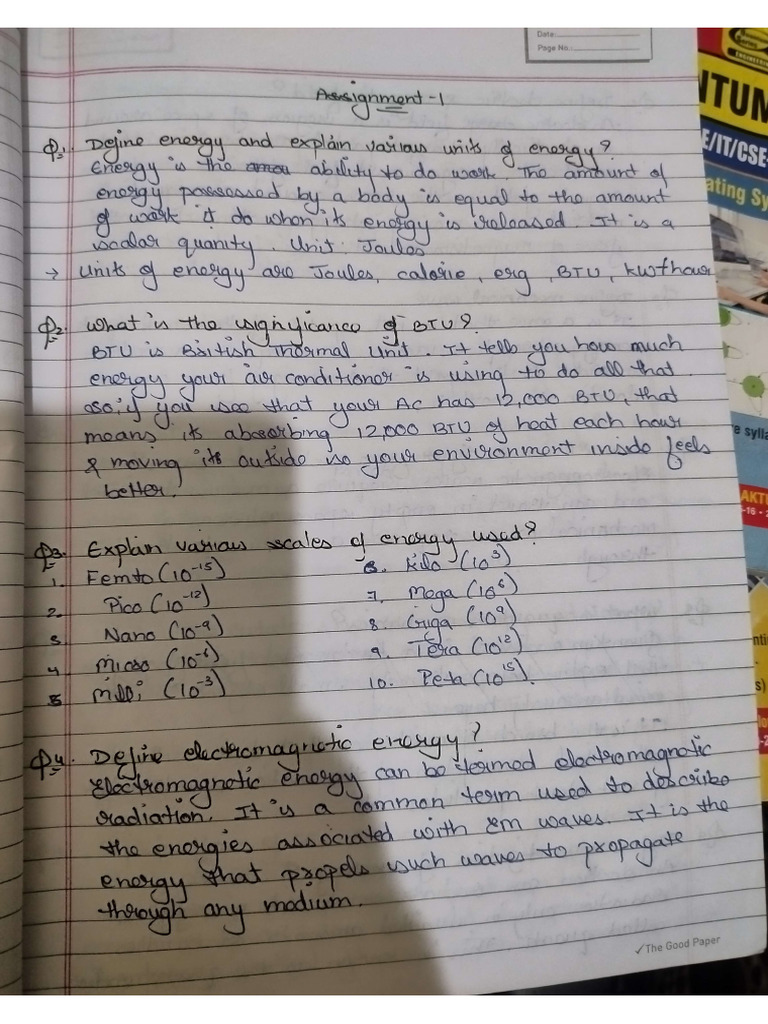 Date:
Page No.:
Assignment-1
Q1. Define energy and explain various units of energy?
Energy is the ability to do work. The amount of
energy possessed by a body is equal to the amount
of work it do when its energy is released. It is a
scalar quanity. Unit: Joules
→ Units of energy are Joules, calorie, erg, BTU, kwhour
Q2. What is the significance of BTU?
BTU is British Thermal Unit. It tells you how much
energy your air conditioner is using to do all that.
so, if you see that your AC has 12,000 BTU, that
means its absorbing 12,000 BTU of heat each hour
& moving its outside so your environment inside feels
better.
Q3. Explain various scales of energy used?
1. Femto (10⁻¹⁵)
2. Pico (10⁻¹²)
3 Nano (10⁻⁹)
4 Micro (10⁻⁶)
5 Milli (10⁻³)
6. Kilo (10³)
7. Mega (10⁶)
8. Giga (10⁹)
9. Tera (10¹²)
10. Peta (10¹⁵).
Q4. Define electromagnetic energy?
Electromagnetic energy can be termed electromagnetic
radiation. It is a common term used to describe
the energies associated with em waves. It is the
energy that propels such waves to propagate
through any medium.
✓The Good Paper
NTUM
E/IT/CSE-
ating Sy
e sylla
AKTU